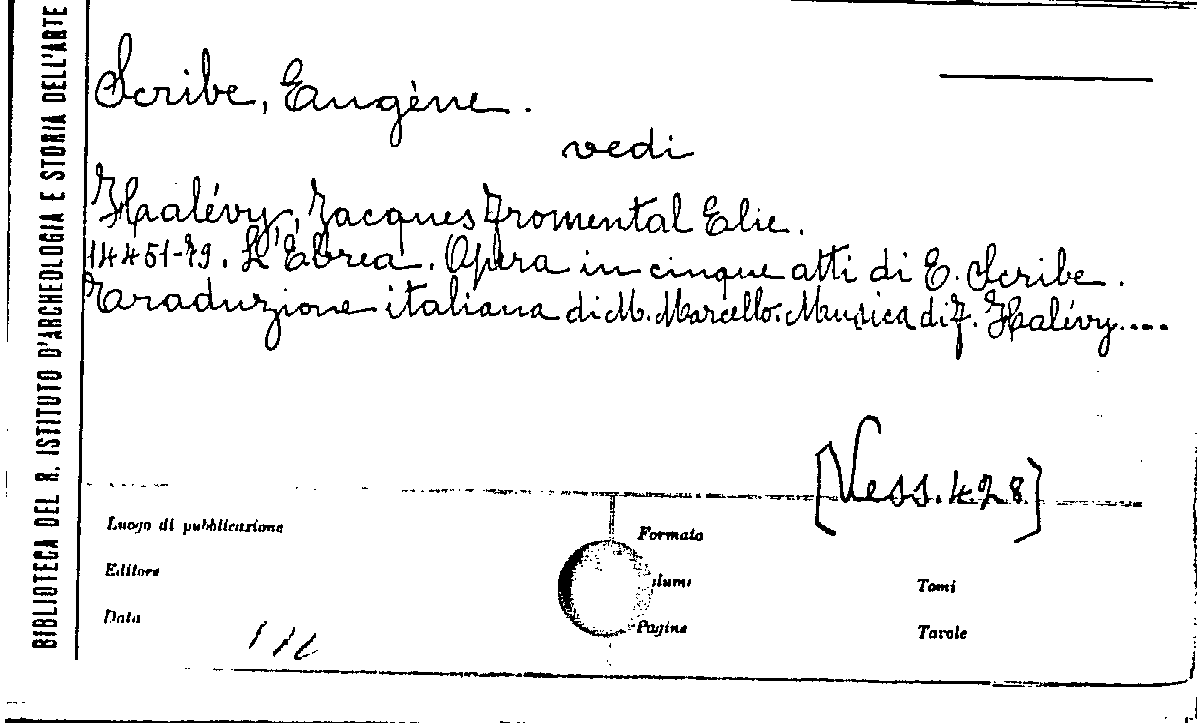 BIBLIOTECA DEL R. ISTITUTO D'ARCHEOLOGIA E STORIA DELL'ARTE
Scribe, Eugène.
vedi
Halévy, Jacques Fromental Elie.
14451-79. L'Ebrea. Opera in cinque atti di E. Scribe.
Traduzione italiana di M. Marcello. Musica di F. Halévy....
[Vess. 428]
Luogo di pubblicazione
Formato
Editore
Tomi
Data
Pagine
Tavole